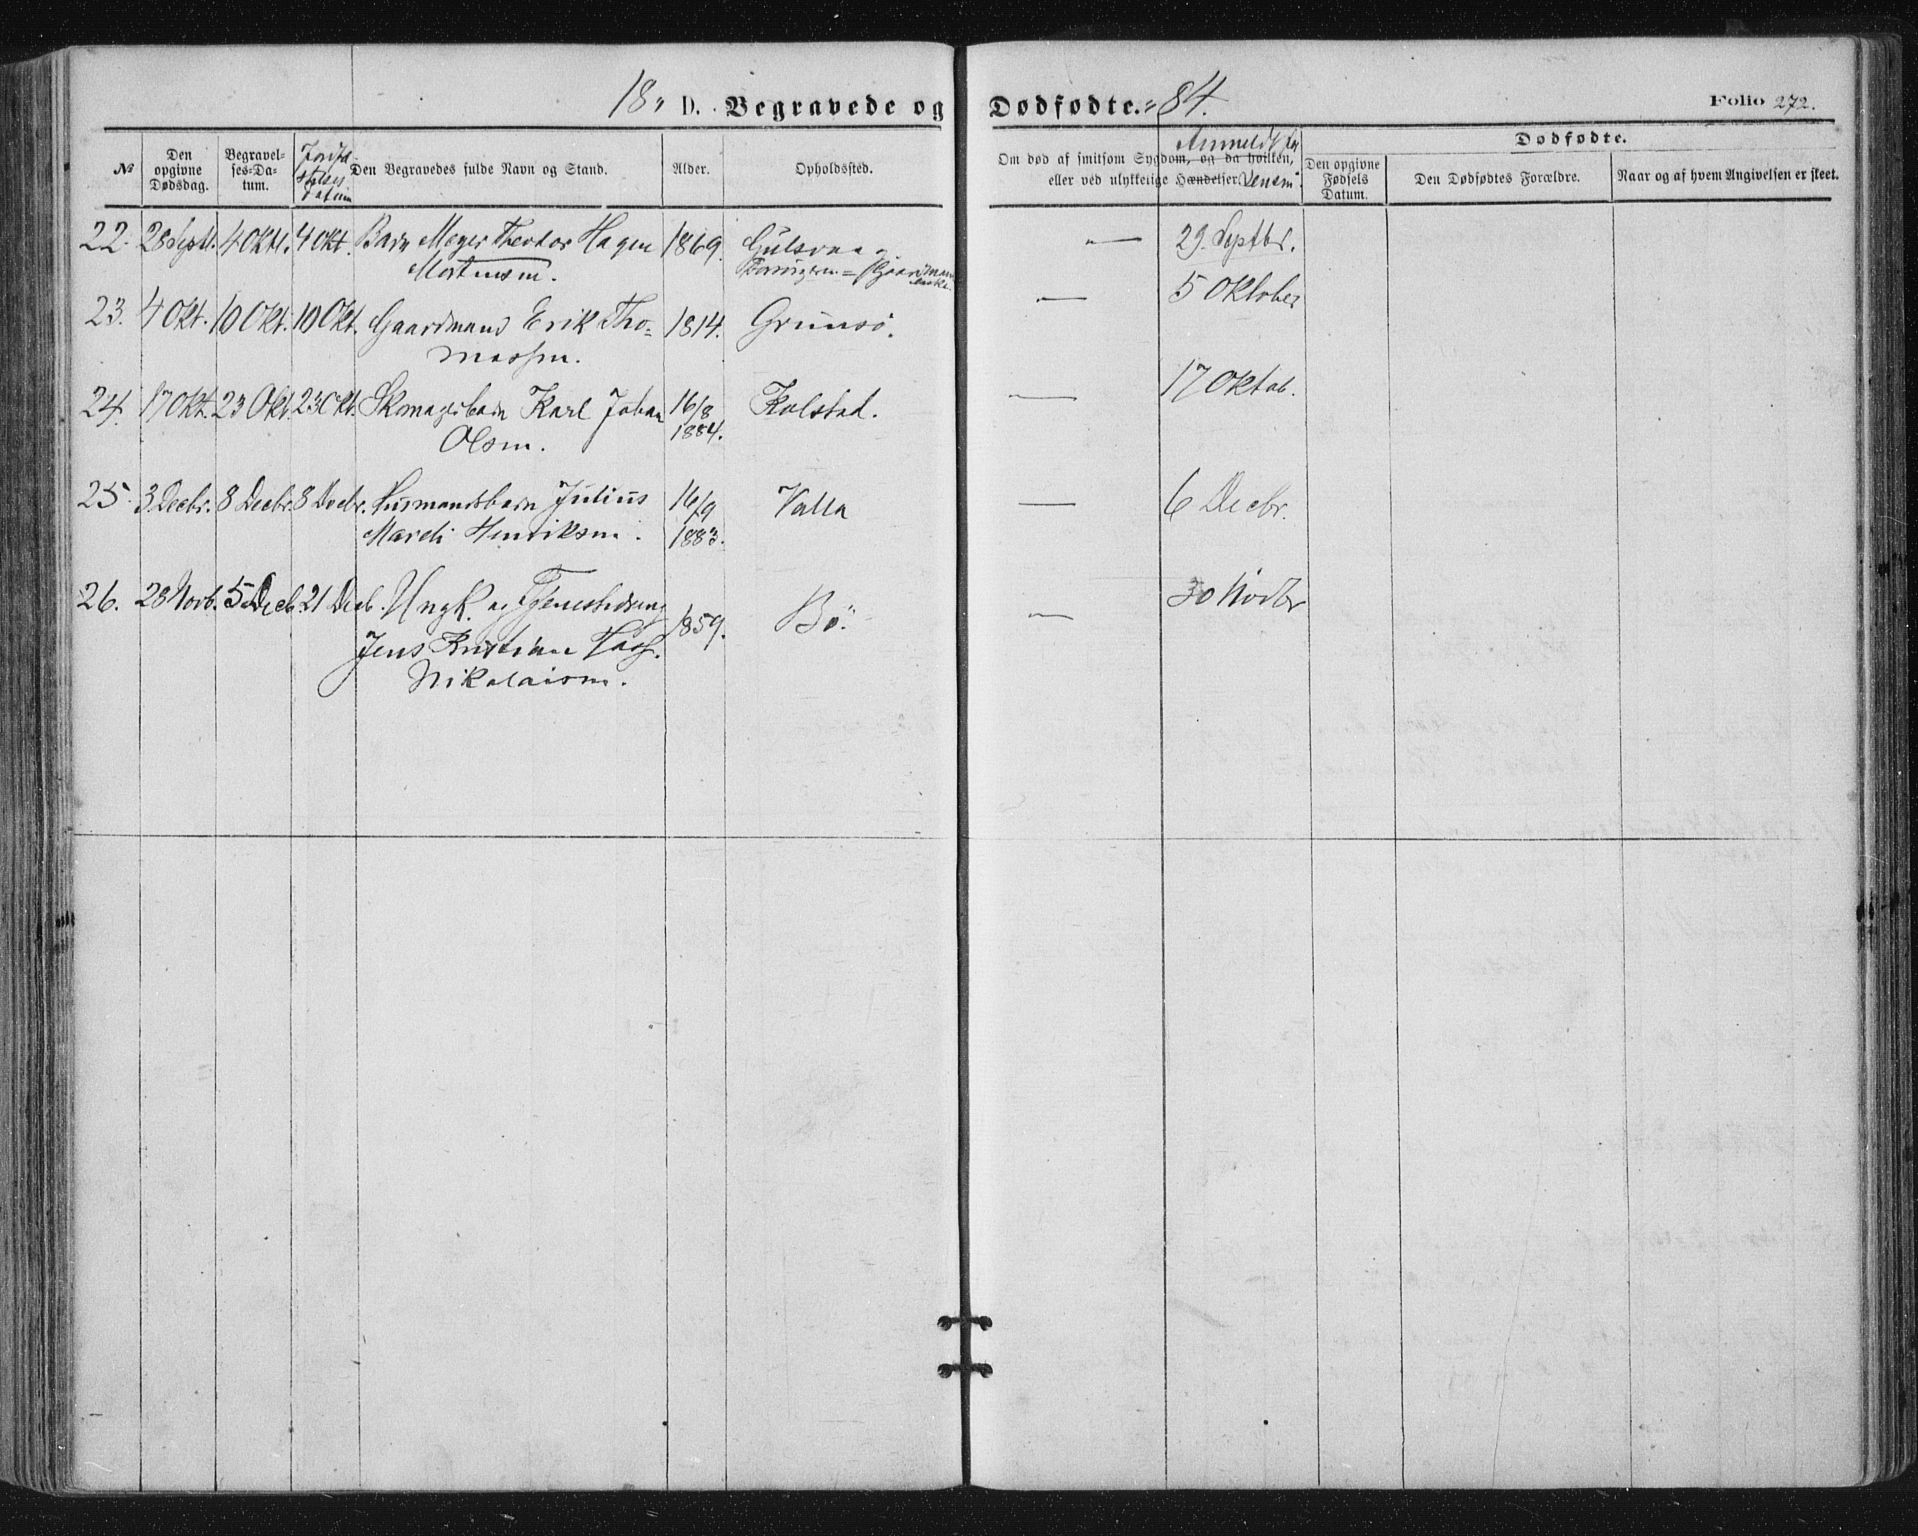 18 " D. Begravede og Dødfødte. " 84.
Folio 272.
№
Den opgivne Dødsdag.
Begravelses-Datum.
Jordfæstelses Datum
Den Begravedes fulde Navn og Stand.
Alder.
Opholdssted.
Om død af smitsom Sygdom, og da hvilken,
eller ved ulykkelige Hændelser.
Anmeldt for
Lensm.
Dødfødte.
Den opgivne Fødsels Datum.
Den Dødfødtes Forældre.
Naar og af hvem Angivelsen er skeet.
22. 28 Septb. 4 Oktb. 4 Okt. Barn Meyer Theodor Hagen 1869. Gulsvaag — 29. Septbr.
Mortensen.
23. 4 Okt. 10 Okt. 10 Okt. Gaardmand Erik Tho= 1814. Grunsö. — 5 Oktober
massen.
24. 17 Okt. 23 Okt. 23 Okt. Skomagerbarn Karl Johan 16/8 Kolstad. — 17 Oktob.
Olsen. 1884.
25. 3 Decbr. 8 Decbr. 8 Decbr. Husmandsbarn Julius 16/9 Valla — 6 Decbr.
Mareli Henriksen. 1883.
26. 28 Novb. 5 Decb. 21 Decb. Ungk. og Tjenestedreng 1859. Bö. — 30 Novbr
Jens Kristian
Nikolaisen.